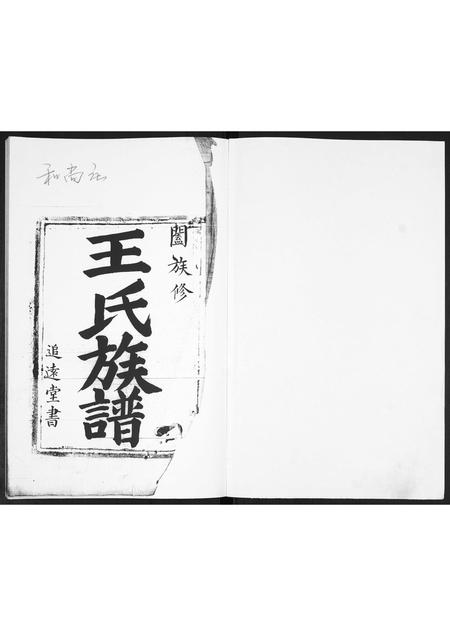 和尚社
闔族修
王氏族譜
追遠堂書